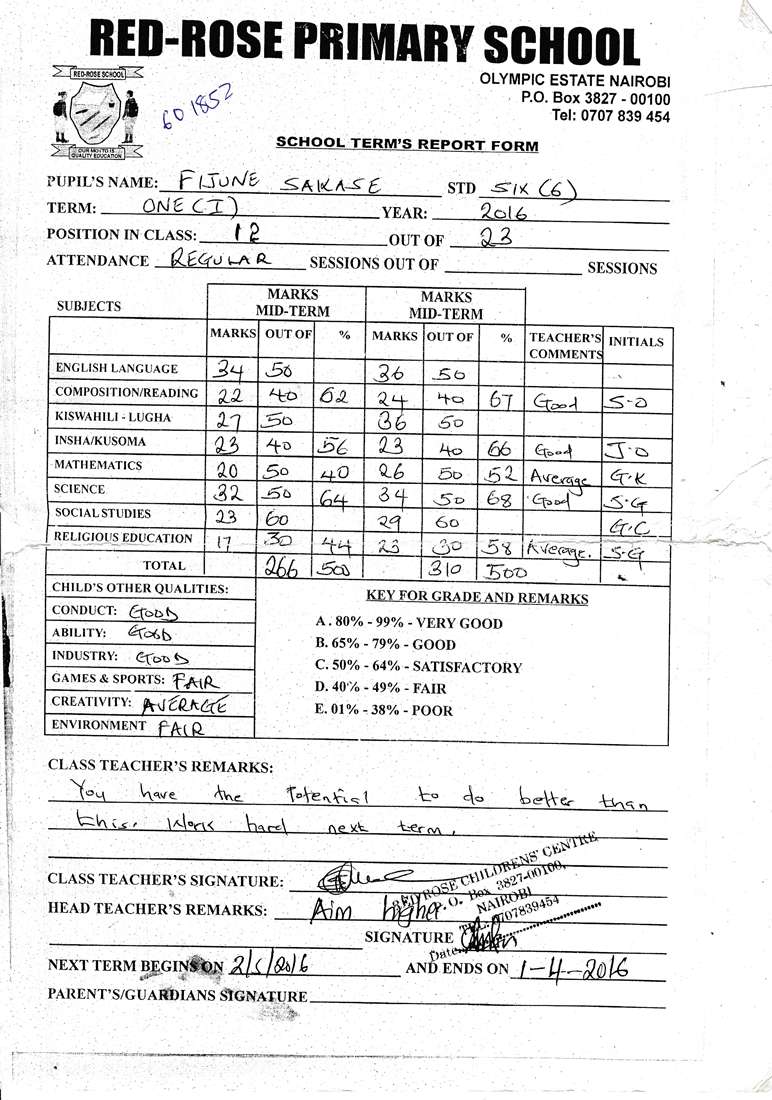 RED-ROSE PRIMARY SCHOOL
RED-ROSE SCHOOL
OUR MOTTO IS
QUALITY EDUCATION
601852
OLYMPIC ESTATE NAIROBI
P.O. Box 3827 - 00100
Tel: 0707 839 454
SCHOOL TERM'S REPORT FORM
PUPIL'S NAME: FIJUNE SAKASE STD SIX (6)
TERM: ONE (I) YEAR: 2016
POSITION IN CLASS: 12 OUT OF 23
ATTENDANCE REGULAR SESSIONS OUT OF SESSIONS
SUBJECTS MARKS MID-TERM MARKS MID-TERM
MARKS OUT OF % MARKS OUT OF % TEACHER'S COMMENTS INITIALS
ENGLISH LANGUAGE 34 50 36 50
COMPOSITION/READING 22 40 62 24 40 67 Good S.O
KISWAHILI - LUGHA 27 50 36 50
INSHA/KUSOMA 23 40 56 23 40 66 Good J.O
MATHEMATICS 20 50 40 26 50 52 Average G.K
SCIENCE 32 50 64 34 50 68 Good S.G
SOCIAL STUDIES 23 60 29 60 G.C
RELIGIOUS EDUCATION 17 30 44 23 30 58 Average. S.G
TOTAL 266 500 310 500
CHILD'S OTHER QUALITIES:
CONDUCT: GOOD
ABILITY: GOOD
INDUSTRY: GOOD
GAMES & SPORTS: FAIR
CREATIVITY: AVERAGE
ENVIRONMENT FAIR
KEY FOR GRADE AND REMARKS
A. 80% - 99% - VERY GOOD
B. 65% - 79% - GOOD
C. 50% - 64% - SATISFACTORY
D. 40% - 49% - FAIR
E. 01% - 38% - POOR
CLASS TEACHER'S REMARKS:
You have the Potential to do better than
this. Work hard next term.
CLASS TEACHER'S SIGNATURE:
HEAD TEACHER'S REMARKS: Aim higher
RED ROSE CHILDRENS' CENTRE
P.O. Box 3827-00100,
NAIROBI
TEL: 0707839454
Date
SIGNATURE
NEXT TERM BEGINS ON 2/5/2016 AND ENDS ON 1-4-2016
PARENT'S/GUARDIANS SIGNATURE